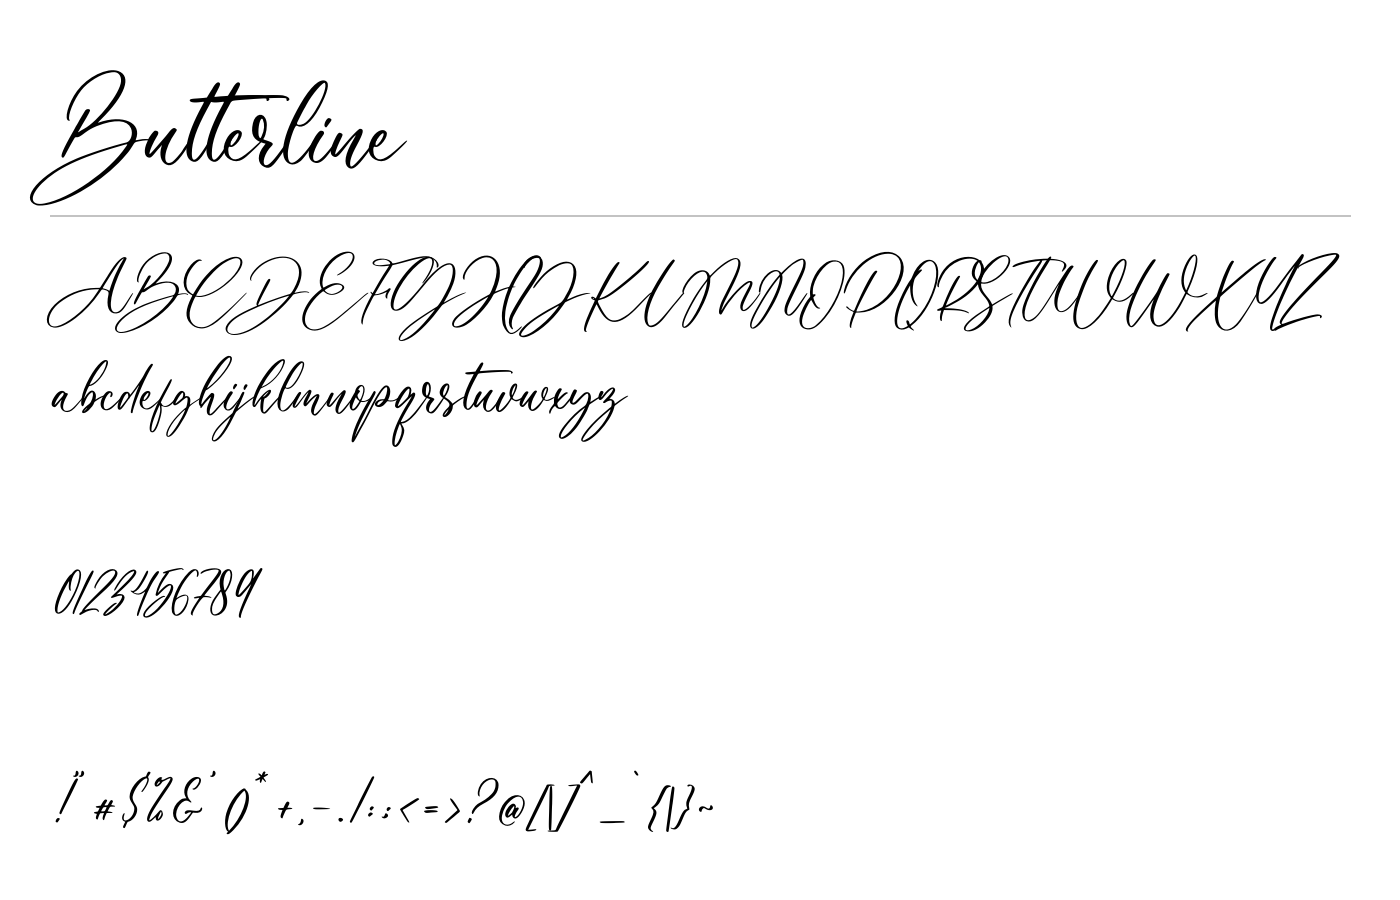 Butterline
ABCDEFGHIJKLMNOPQRSTUVWXYZ
abcdefghijklmnopqrstuvwxyz
0123456789
!"#$%&'()*+,-./:;<=>?@[\]^_`{|}~